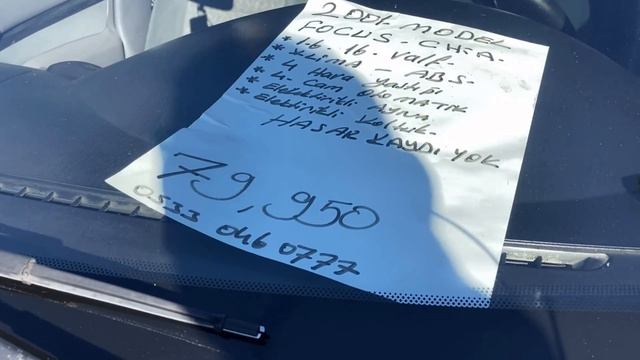 2001. MODEL
FOCUS - GHIA -
* 1.6 - 16. Valf.
* KLIMA - ABS-
* 4 Hava Yastığı
* 4. Cam OtoMATİK
* Elektirikli Ayna
* Elektirikli Koltuk-
HASAR KAYDI YOK
79,950
0533 046 0777